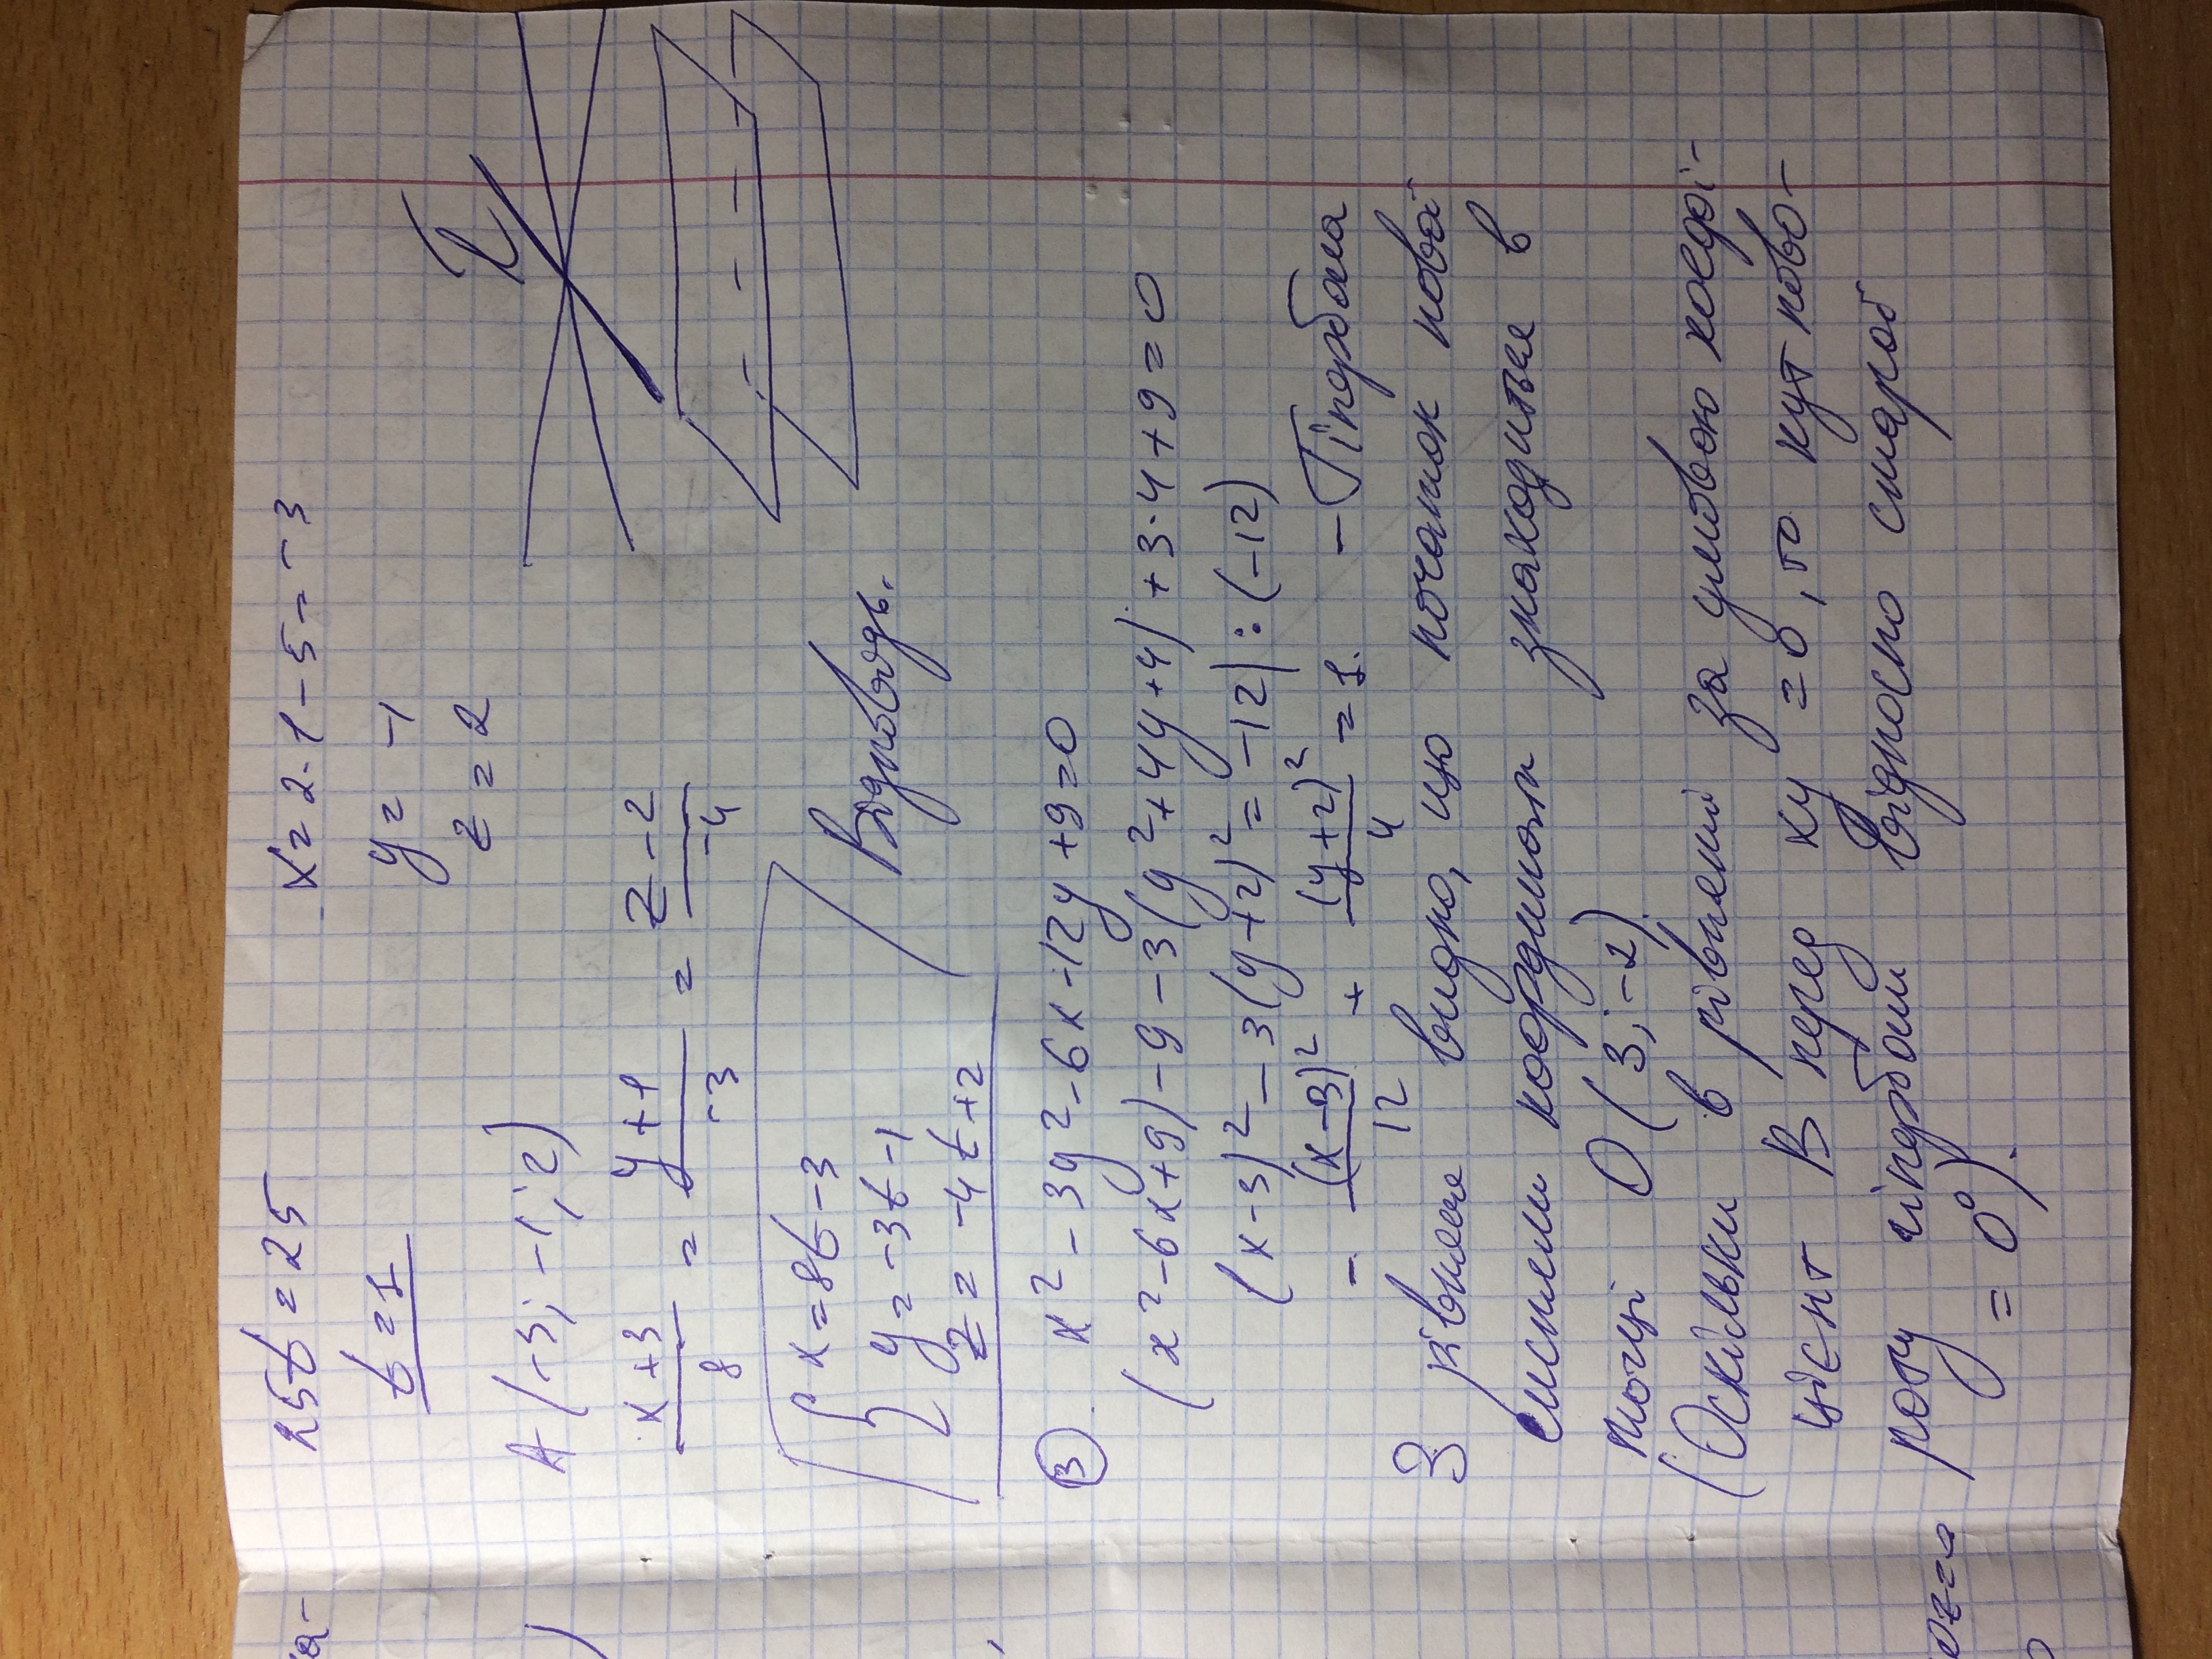 25t = 25
x = 2·1 - 5 = -3
t = 1
y = -1
z = 2
A (-3; -1; 2)
(x+3)/8 = (y+1)/-3 = (z-2)/-4
{ x = 8t - 3
y = -3t - 1
z = -4t + 2
Відповідь.
3. x² - 3y² - 6x - 12y + 9 = 0
(x² - 6x + 9) - 9 - 3(y² + 4y + 4) + 3·4 + 9 = 0
(x-3)² - 3(y+2)² = -12 | : (-12)
- (x-3)²/12 + (y+2)²/4 = 1. - Гіпербола
З рівняння видно, що початок нової
системи координат знаходиться в
точці O (3; -2).
(Оскільки в рівнянні за умовою коефі-
цієнт B перед xy = 0, то кут пово-
роту гіперболи відносно старої
= 0°).